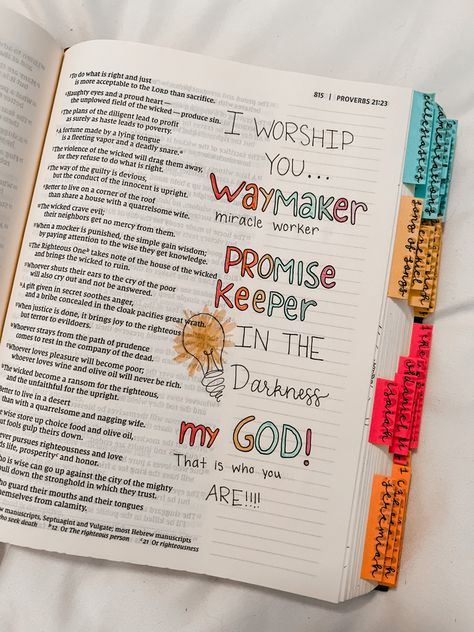 815 | PROVERBS 21:23
³To do what is right and just
is more acceptable to the LORD than sacrifice.
⁴Haughty eyes and a proud heart—
the unplowed field of the wicked—produce sin.
⁵The plans of the diligent lead to profit
as surely as haste leads to poverty.
⁶A fortune made by a lying tongue
is a fleeting vapor and a deadly snare.
⁷The violence of the wicked will drag them away,
for they refuse to do what is right.
⁸The way of the guilty is devious,
but the conduct of the innocent is upright.
⁹Better to live on a corner of the roof
than share a house with a quarrelsome wife.
¹⁰The wicked crave evil;
their neighbors get no mercy from them.
¹¹When a mocker is punished, the simple gain wisdom;
by paying attention to the wise they get knowledge.
¹²The Righteous One takes note of the house of the wicked
and brings the wicked to ruin.
¹³Whoever shuts their ears to the cry of the poor
will also cry out and not be answered.
¹⁴A gift given in secret soothes anger,
and a bribe concealed in the cloak pacifies great wrath.
When justice is done, it brings joy to the righteous
but terror to evildoers.
Whoever strays from the path of prudence
comes to rest in the company of the dead.
Whoever loves pleasure will become poor;
whoever loves wine and olive oil will never be rich.
The wicked become a ransom for the righteous,
and the unfaithful for the upright.
Better to live in a desert
than with a quarrelsome and nagging wife.
wise store up choice food and olive oil,
but fools gulp theirs down.
ever pursues righteousness and love
life, prosperity and honor.
who is wise can go up against the city of the mighty
pull down the stronghold in which they trust.
who guard their mouths and their tongues
themselves from calamity.
manuscripts, Septuagint and Vulgate; most Hebrew manuscripts
who seek death 12 Or The righteous person 21 Or righteousness
I WORSHIP
YOU...
WAYMAKER
miracle worker
PROMISE
KEEPER
IN THE
Darkness
my GOD!
That is who you
ARE!!!!
ecclesiastes
song of songs
isaiah
jeremiah